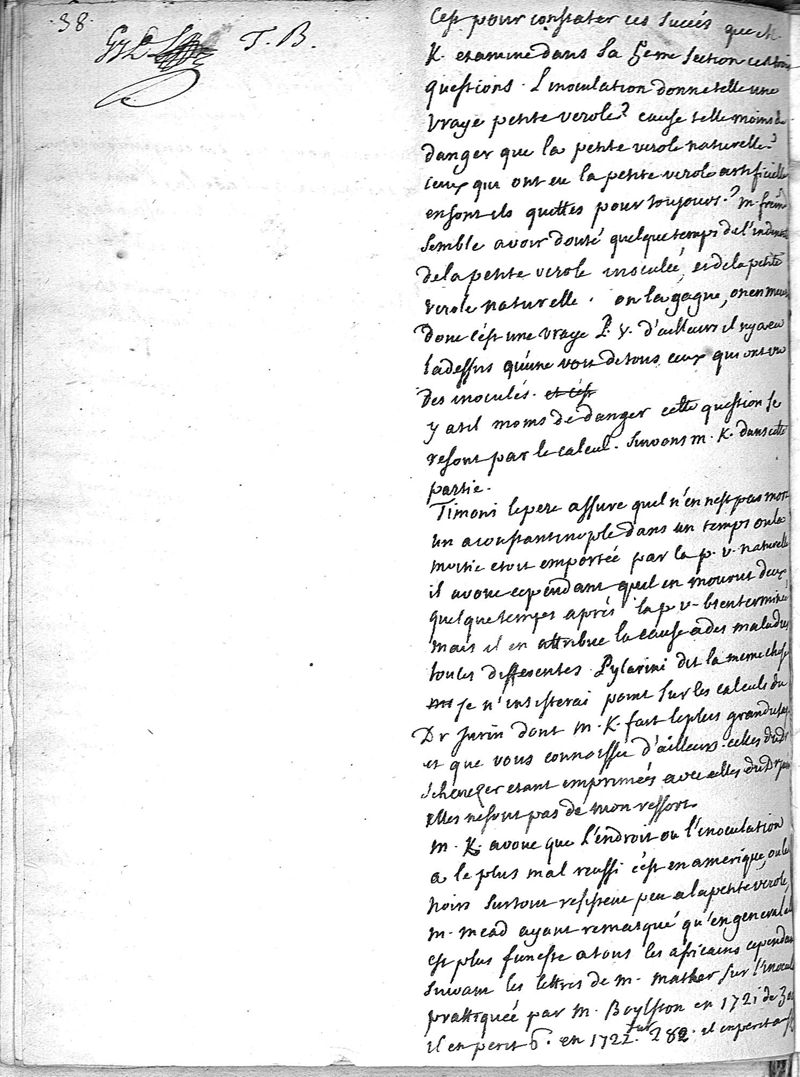 38
T. B.
C'est pour constater ces succés que M.
K. examine dans sa 5eme section ces trois
questions. L'inoculation donne telle une
vraye petite verole? cause telle moins de
danger que la petite verole naturelle?
ceux qui ont eu la petite verole artificielle
en sont ils quittes pour toujours? m. freind
semble avoir douté quelque temps de l'indentité
de la petite verole inoculée, et de la petite
verole naturelle. on la gagne, on en meurt
donc c'est une vraye P. V. d'ailleurs il ny a eu
la dessus qu'une voix de tous ceux qui ont vu
des inoculés. et c'est
y a til moins de danger cette question se
resout par le calcul. suivons m. K. dans cette
partie.
Timoni le pere assure quil n'en n'est pas mort
un a constantinople dans un temps ou la
moitie etoit emportée par la p. v. naturelle
il avoue cependant quil en mourut deux
quelque temps aprés la p v. bien terminée
mais il en attribue la cause a des maladies
toutes differentes. Pylarini dit la meme chose
je n'insisterai point sur les calculs du
Dr Jurin dont m. K. fait le plus grand usage
et que vous connoissés d'ailleurs. celles du Dr
Scheuzer etant imprimées avec celles du Dr Jurin
elles ne sont pas de mon ressort.
m. K. avoue que l'endroit ou l'inoculation
a le plus mal reussi c'est en amerique, ou les
noirs surtout resistent peu a la petite verole,
m. mead ayant remarqué qu'en general elle
est plus funeste a tous les africains cependant
suivant les lettres de m. mather sur l'inocul
prattiquée par m. Boylston en 1721 de
il en perit 6. en 1722. sur 282. il en perit